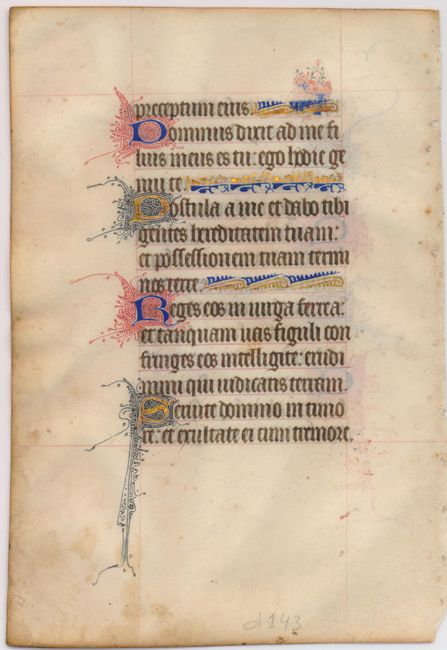 preceptum eius
Dominus dixit ad me fi
lius meus es tu: ego hodie ge
nui te
Postula a me et dabo tibi
gentes hereditatem tuam:
et possessionem tuam termi
nos terre.
Reges eos in uirga ferrea:
et tanquam uas figuli con
fringes eos intelligite: erudi
mini qui iudicatis terram.
Seruite domino in timo
re: et exultate ei cum tremore.
d143